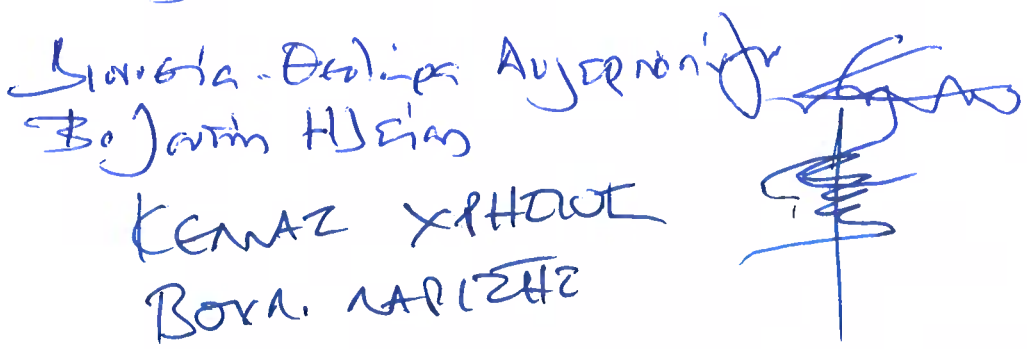 Διονυσία-Θεοδώρα Αυγερινοπούλου
Βουλευτής Ηλείας
ΚΕΛΛΑΣ ΧΡΗΣΤΟΣ
ΒΟΥΛ. ΛΑΡΙΣΗΣ